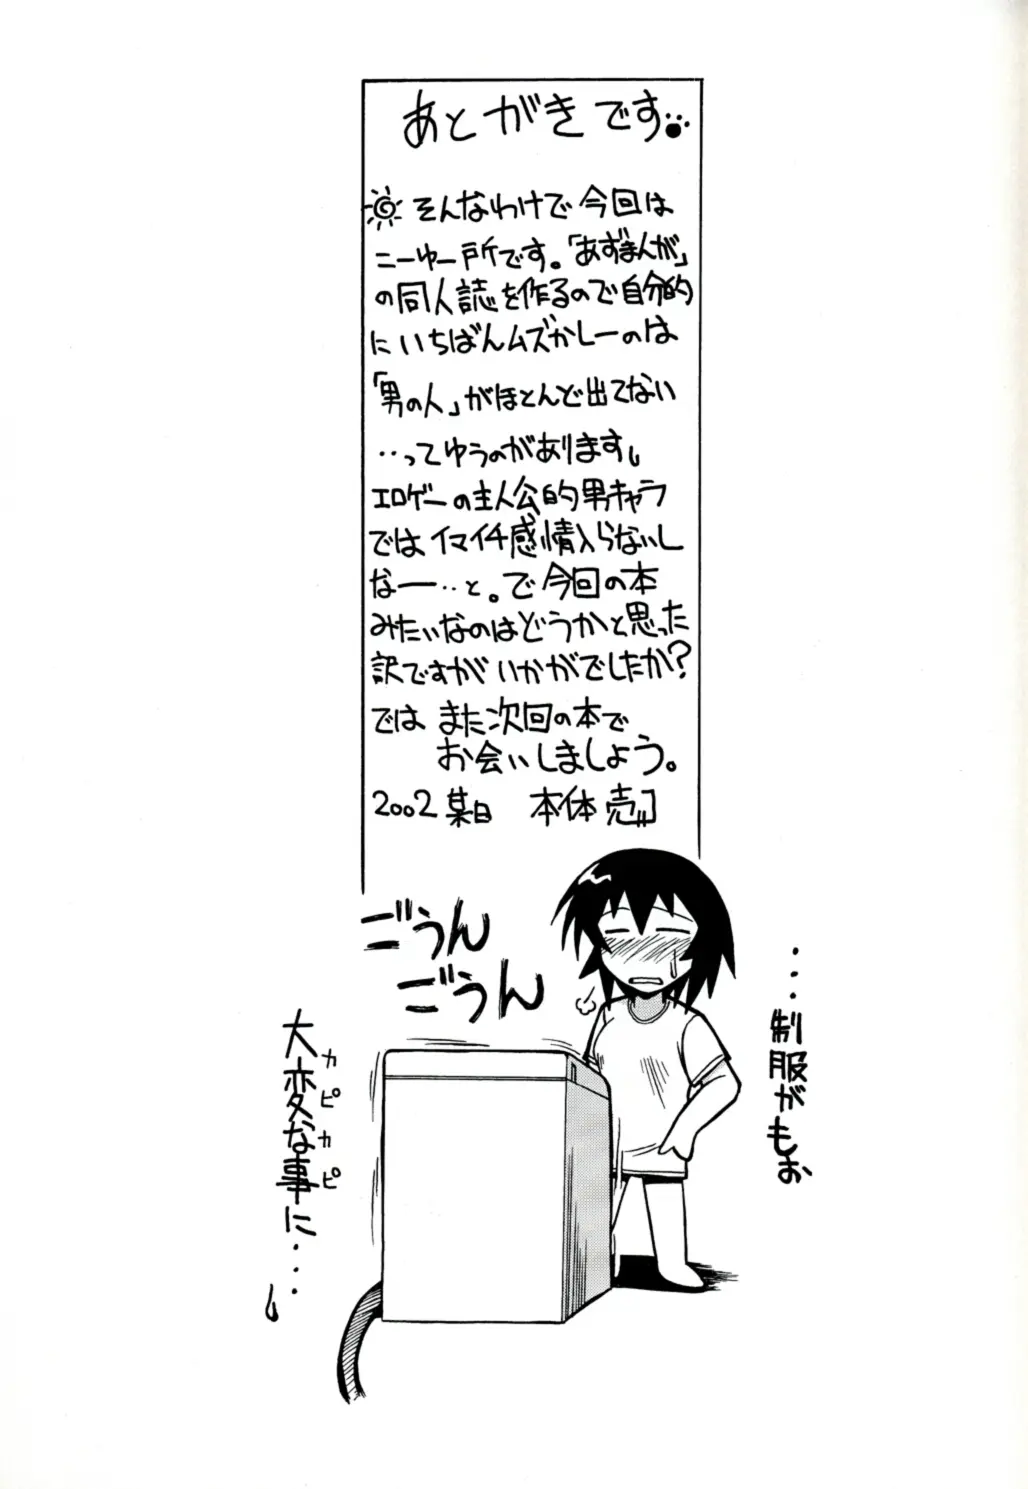 あとがきです
そんなわけで今回は
こーゆー所です。「あずまんが」
の同人誌を作るので自分的
にいちばんムズかしーのは
「男の人」がほとんど出てない
‥ってゆうのがあります。
エロゲーの主人公的男キャラ
ではイマイチ感情入らないし
なー‥と。で今回の本
みたいなのはどうかと思った
訳ですがいかがでしたか?
では また次回の本で
お会いしましょう。
2002 某日 本体売
ごうん
ごうん
・・・制服がもぉ
大変な事に・・・
カピカピ